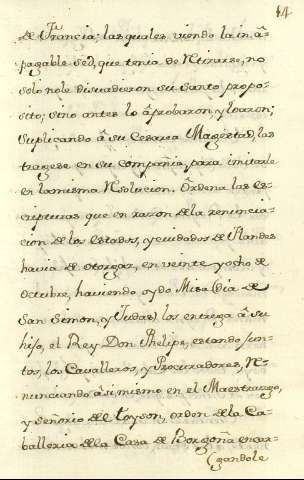 14
de Francia; las quales viendo la in â-
pagable sed, que tenia de Retirarse, no
solo no le disuadieron su Santo propo-
sito; sino antes lo âprobaron, y loaron;
Suplicando â su Cesarea Magestad, las
tragese en su compañia, para imitarle
en la misma Resolucion. Ordena las es-
cripturas que en razon de la renuncia-
cion de los estados, y cuidados de Flandes
havia de otorgar, en veinte y ocho de
Octubre, haviendo oydo Misa (dia de
San Simon, y Judas) los entrega â su
hijo, el Rey Don Phelipe, estando jun-
tos, los Cavalleros, y Procuradores, Re-
nunciando âsimismo en el Maestrazgo,
y señorio del toyson, orden de la Ca-
balleria de la Casa de Borgoña encar-
(gandole